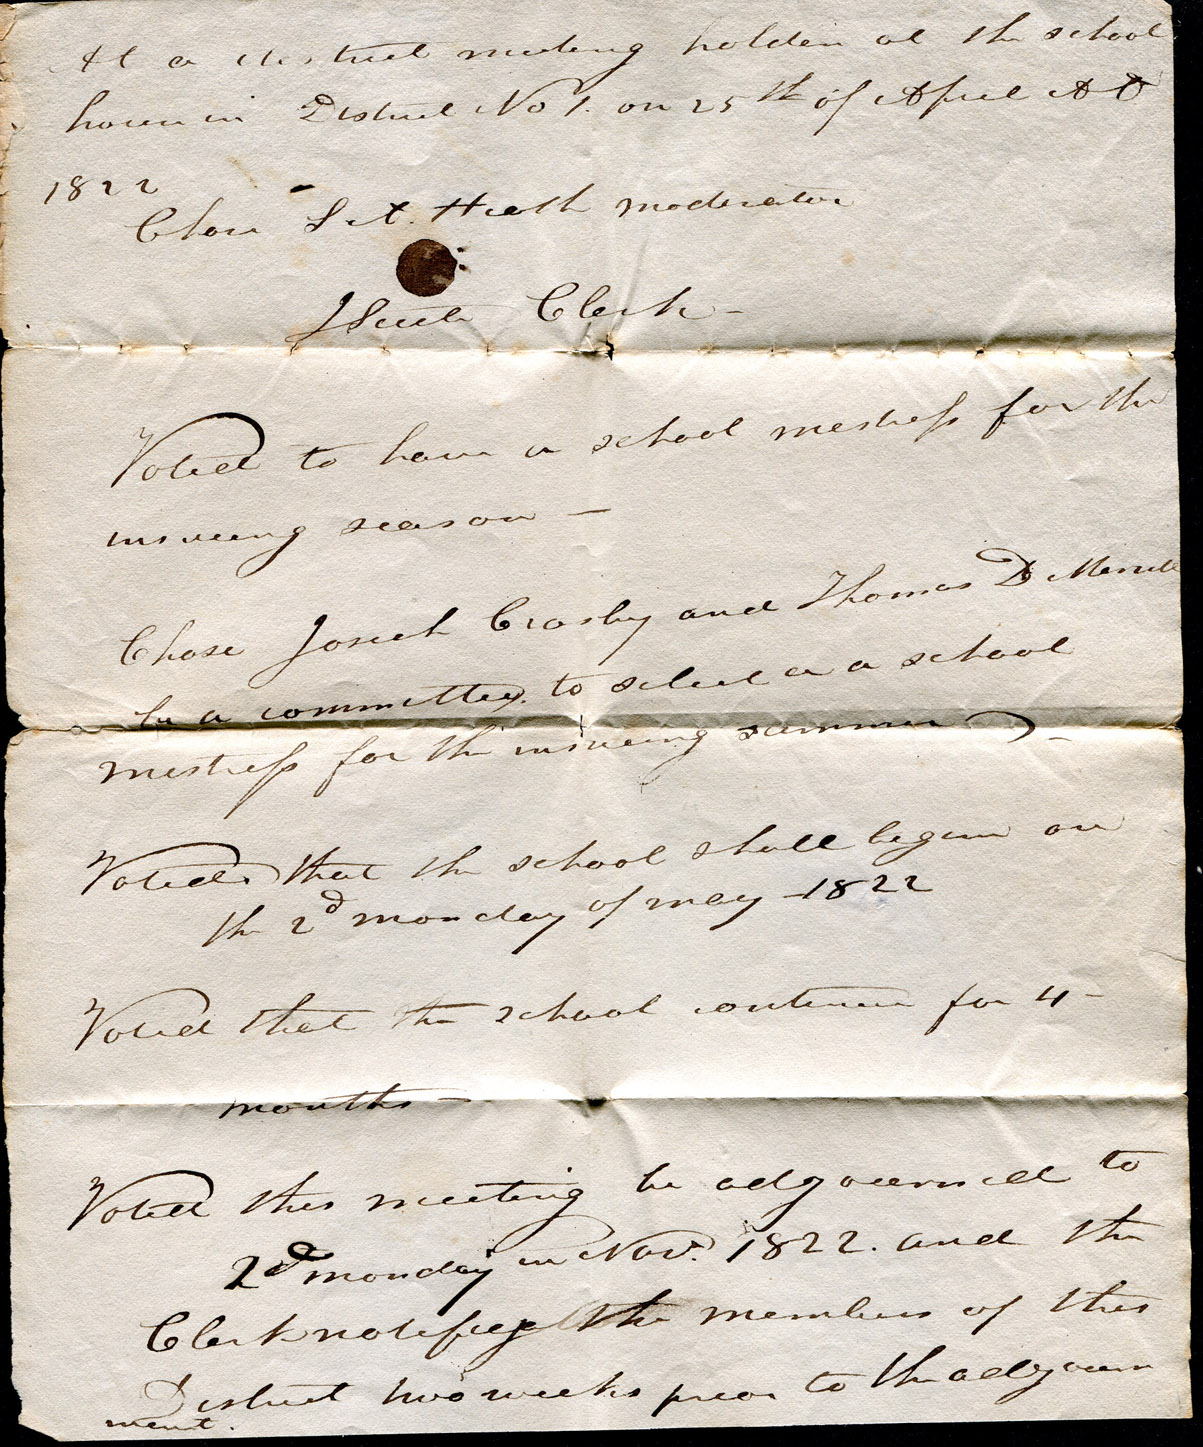 At a district meeting holden at the school
house in District No 1. on 25th of April AD
1822
Chose Heath moderator
Clerk -
Voted to have a school mestress for the
insueing season -
Chose Josiah Crosby and Thomas D Merrill
be a committee. to select a a school
mestress for the insueing summer -
Voted that the school shall begin on
the 2d monday of may - 1822
Voted that the school continue for 4 -
months -
Voted this meeting be adgourned to
2d monday in Nov. 1822. and the
Clerk notifye the members of this
District two weeks prior to the adgourn
ment.